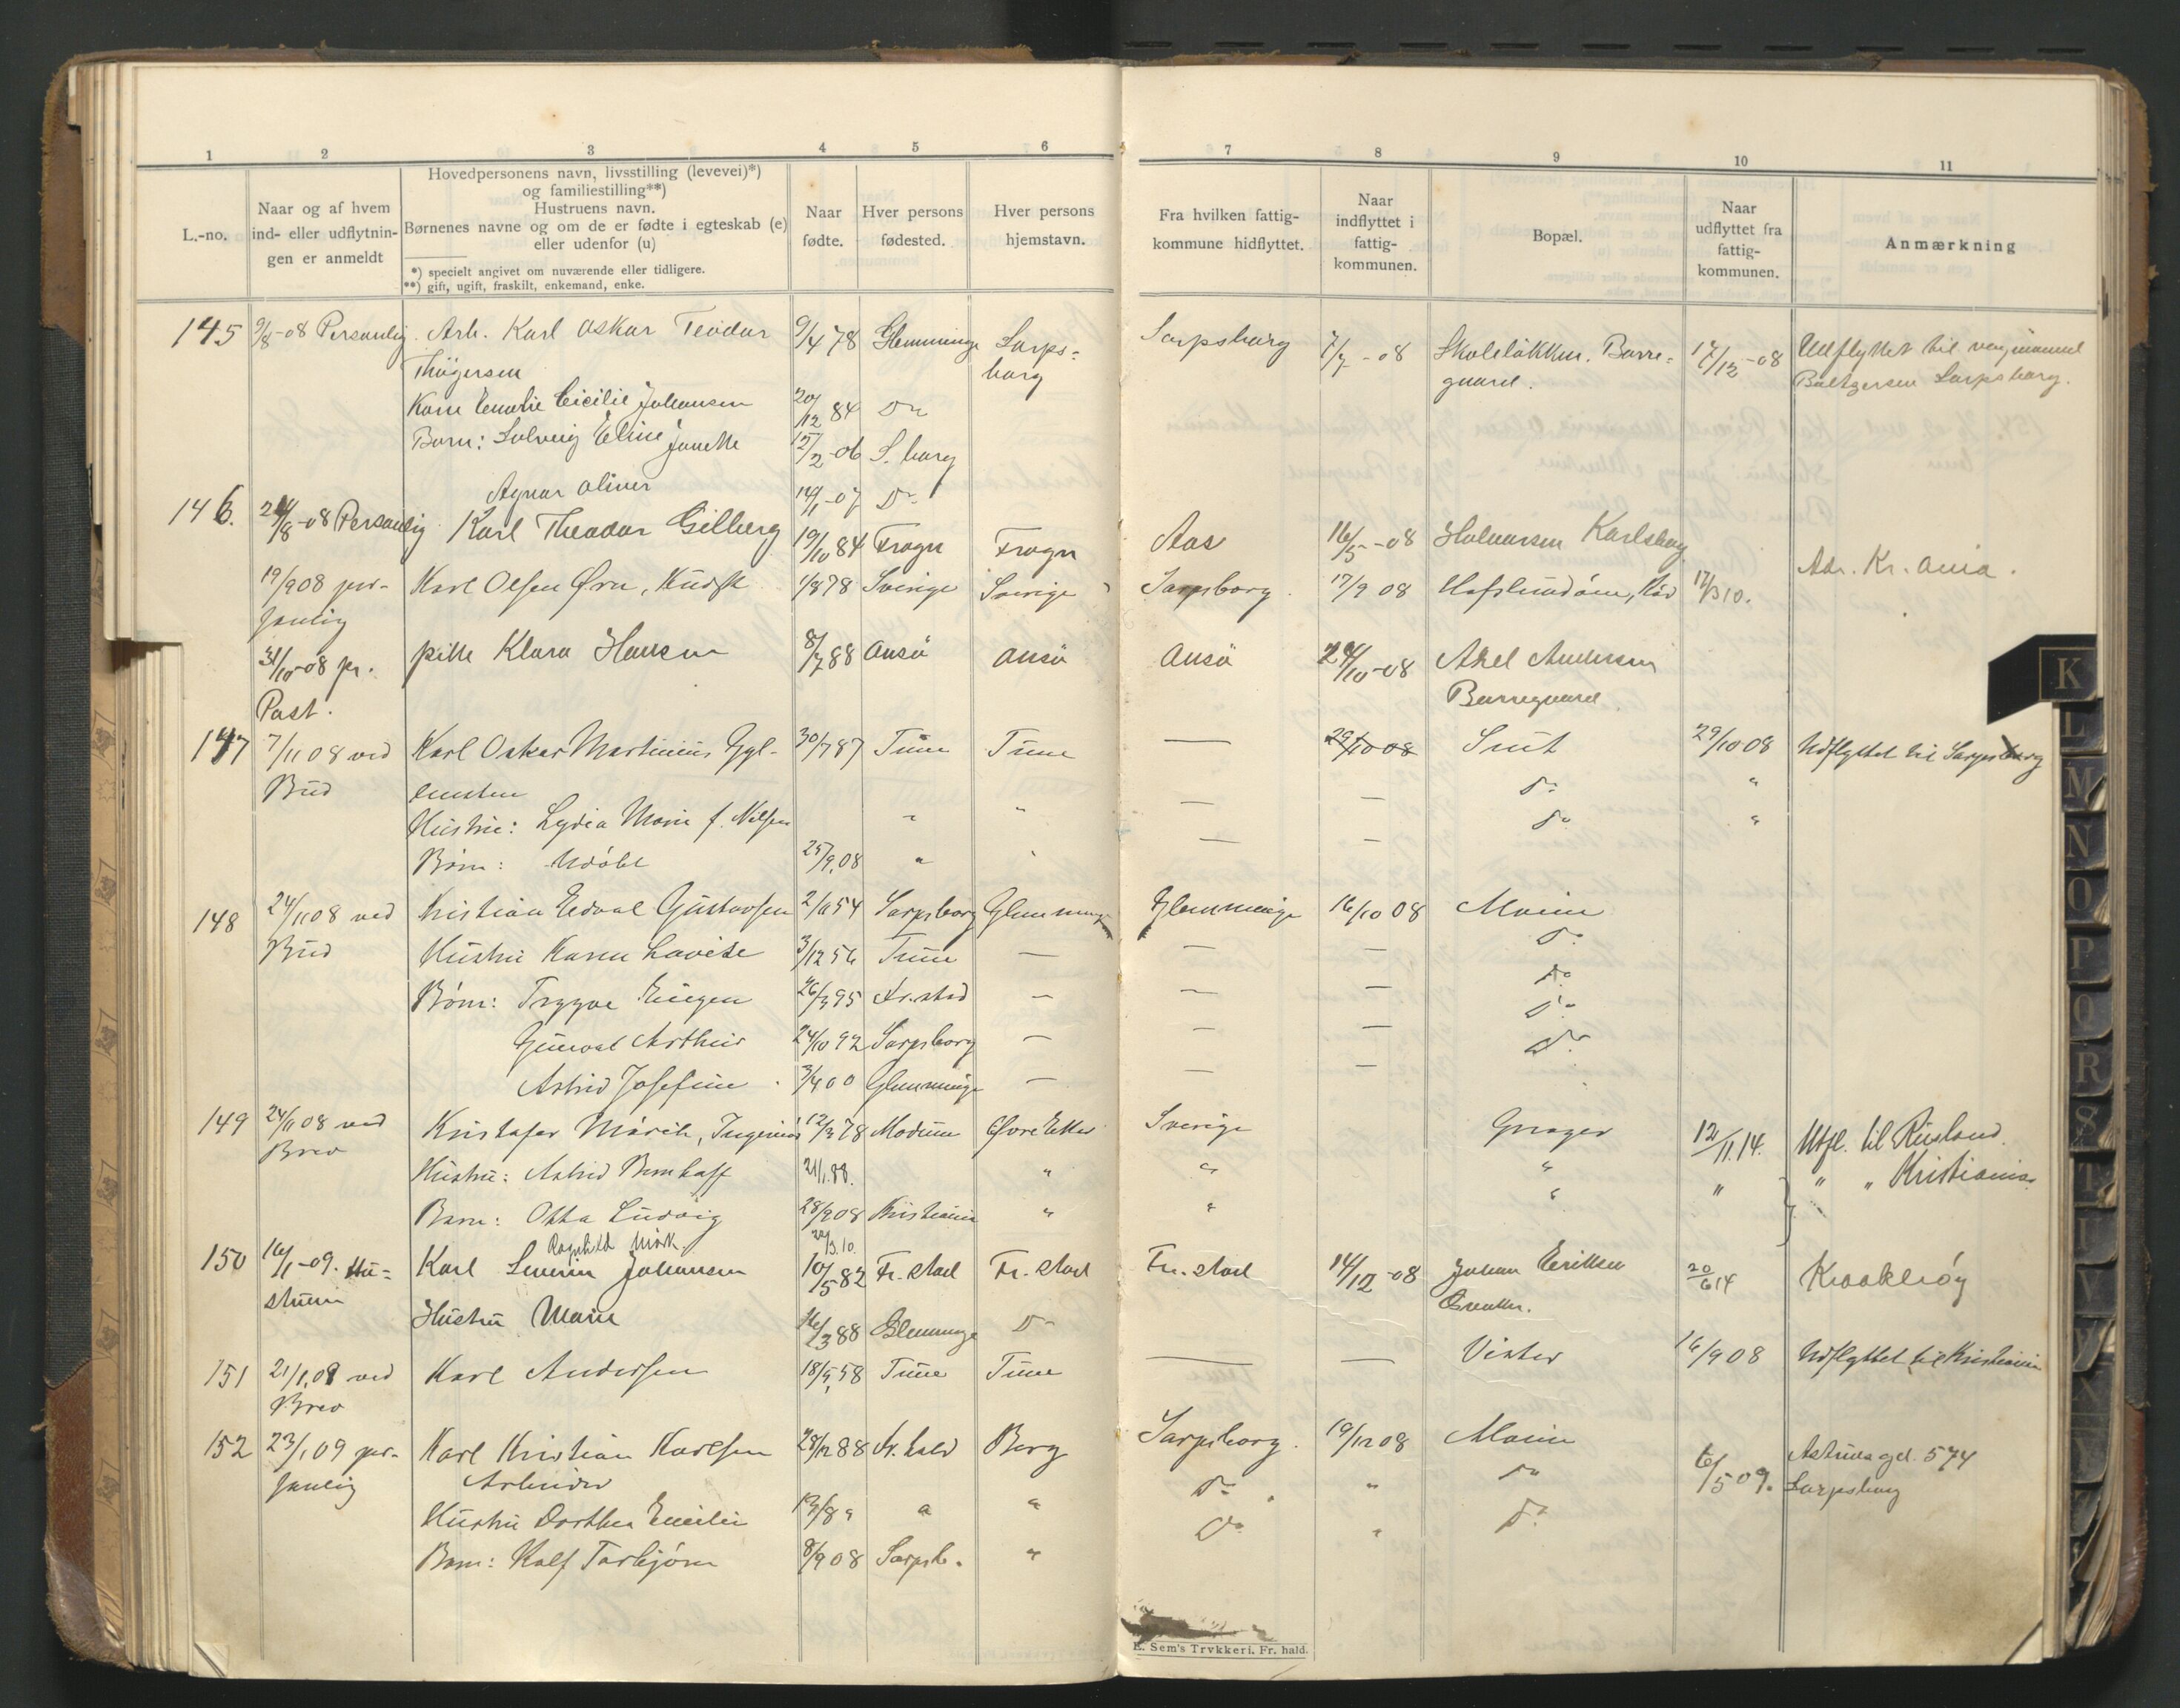 1 2 3 4 5 6 7 8 9 10 11
L.-no.
Naar og af hvem
ind- eller udflytnin-
gen er anmeldt
Hovedpersonens navn, livsstilling (levevei)*)
og familiestilling**)
Hustruens navn.
Børnenes navne og om de er fødte i egteskab (e)
eller udenfor (u)
*) specielt angivet om nuværende eller tidligere.
**) gift, ugift, fraskilt, enkemand, enke.
Naar
fødte.
Hver persons
fødested.
Hver persons
hjemstavn.
Fra hvilken fattig-
kommune hidflyttet.
Naar
indflyttet i
fattig-
kommunen.
Bopæl.
Naar
udflyttet fra
fattig-
kommunen.
Anmærkning
145 9/8-08 Personlig. Arb. Karl Oskar Teodor 9/4 78 Glemminge Sarps= Sarpsborg 7/7-08 Skoleløkken. Borre= 17/12-08 Udflyttet til
Thøgersen borg gaard. Sarpsborg.
Kone Emelie Cicilie Johansen 20/12 84 Do
Barn: Solveig Eline Janette 15/2-06 S.borg
Agnar Oliver 14/1-07 Do
146. 24/8-08 Personlig Karl Theodor Gilberg 19/10 84 Frogn Frogn Aas 16/5-08 Halvorsen Karlsborg
Adr. Kr.ania.
19/9 08 per- Karl Olsen Ørn, Kudsk 1/8 78 Sverige Sverige Sarpsborg. 17/9 08 17/3 10.
sonlig
31/10-08 pr. pike Klara Hansen 8/7 88 Onsö Onsö Onsö 24/10-08 Axel Andersen
Post. Borregaard
147 7/11 08 ved Karl Oskar Martinius Gyl- 30/7 87 Tune Tune — 29/10 08 29/10 08 Udflyttet til Sarpsborg
Bud lensten — — Do "
Hustru: Lydia Marie f. Nilsen " " — — Do "
Børn: Udøbt 25/9.08 "
148 24/11 08 ved Kristian Edval Gustavsen 2/11 54 Sarpsborg Glemminge Glemminge 16/10 08 Moum
Bud Hustru Karen Lovise 3/12 56 Tune — — — Do
Børn: Trygve Eugen 26/3 95 Fr.stad — — — Do
Gunval Arthur 24/10 92 Sarpsborg — — — Do
Astrid Josefine. 3/4 00 Glemminge — — — Do
149 24/11 08 ved Kristofer Mörch, Ingeniør 12/3 78 Modum Øvre Eker Sverige Greager 12/11.14. Utfl. til Rusland.
Brev Hustru: Astrid 21/1.88. " " " " " " Kristiania
Barn: Otto Ludvig 28/9 08 Kristiania " " "
Ragnhild Mörk 20/3.10.
150 16/1-09. Hu= Karl Severin Johansen 10/5 82 Fr.stad Fr.stad Fr.stad 14/12-08 Johan Eriksen 20/6 14 Kraakerøy
struen Greaker.
Hustru Marie 16/3 88 Glemminge Do
151 21/1.09 ved Karl Andersen 18/5 58 Tune Tune — — Vister 16/9 08 Udflyttet til Kristiania
Brev
152 23/1 09 per- Karl Kristian Karlsen 28/12 88 Fr.hald Berg Sarpsborg. 19/12 08 Moum 6/5 09. gd. 574
sonlig Arbeider Do " Do Sarpsborg
Hustru Dorthea Emilie " " Do " Do
Barn: Rolf Torbjørn 8/9 08 Sarpsb. "
E. Sem's Trykkeri. Fr. hald.
K
L
M
N
O
P
Q
R
S
T
U
V
W
X
Y